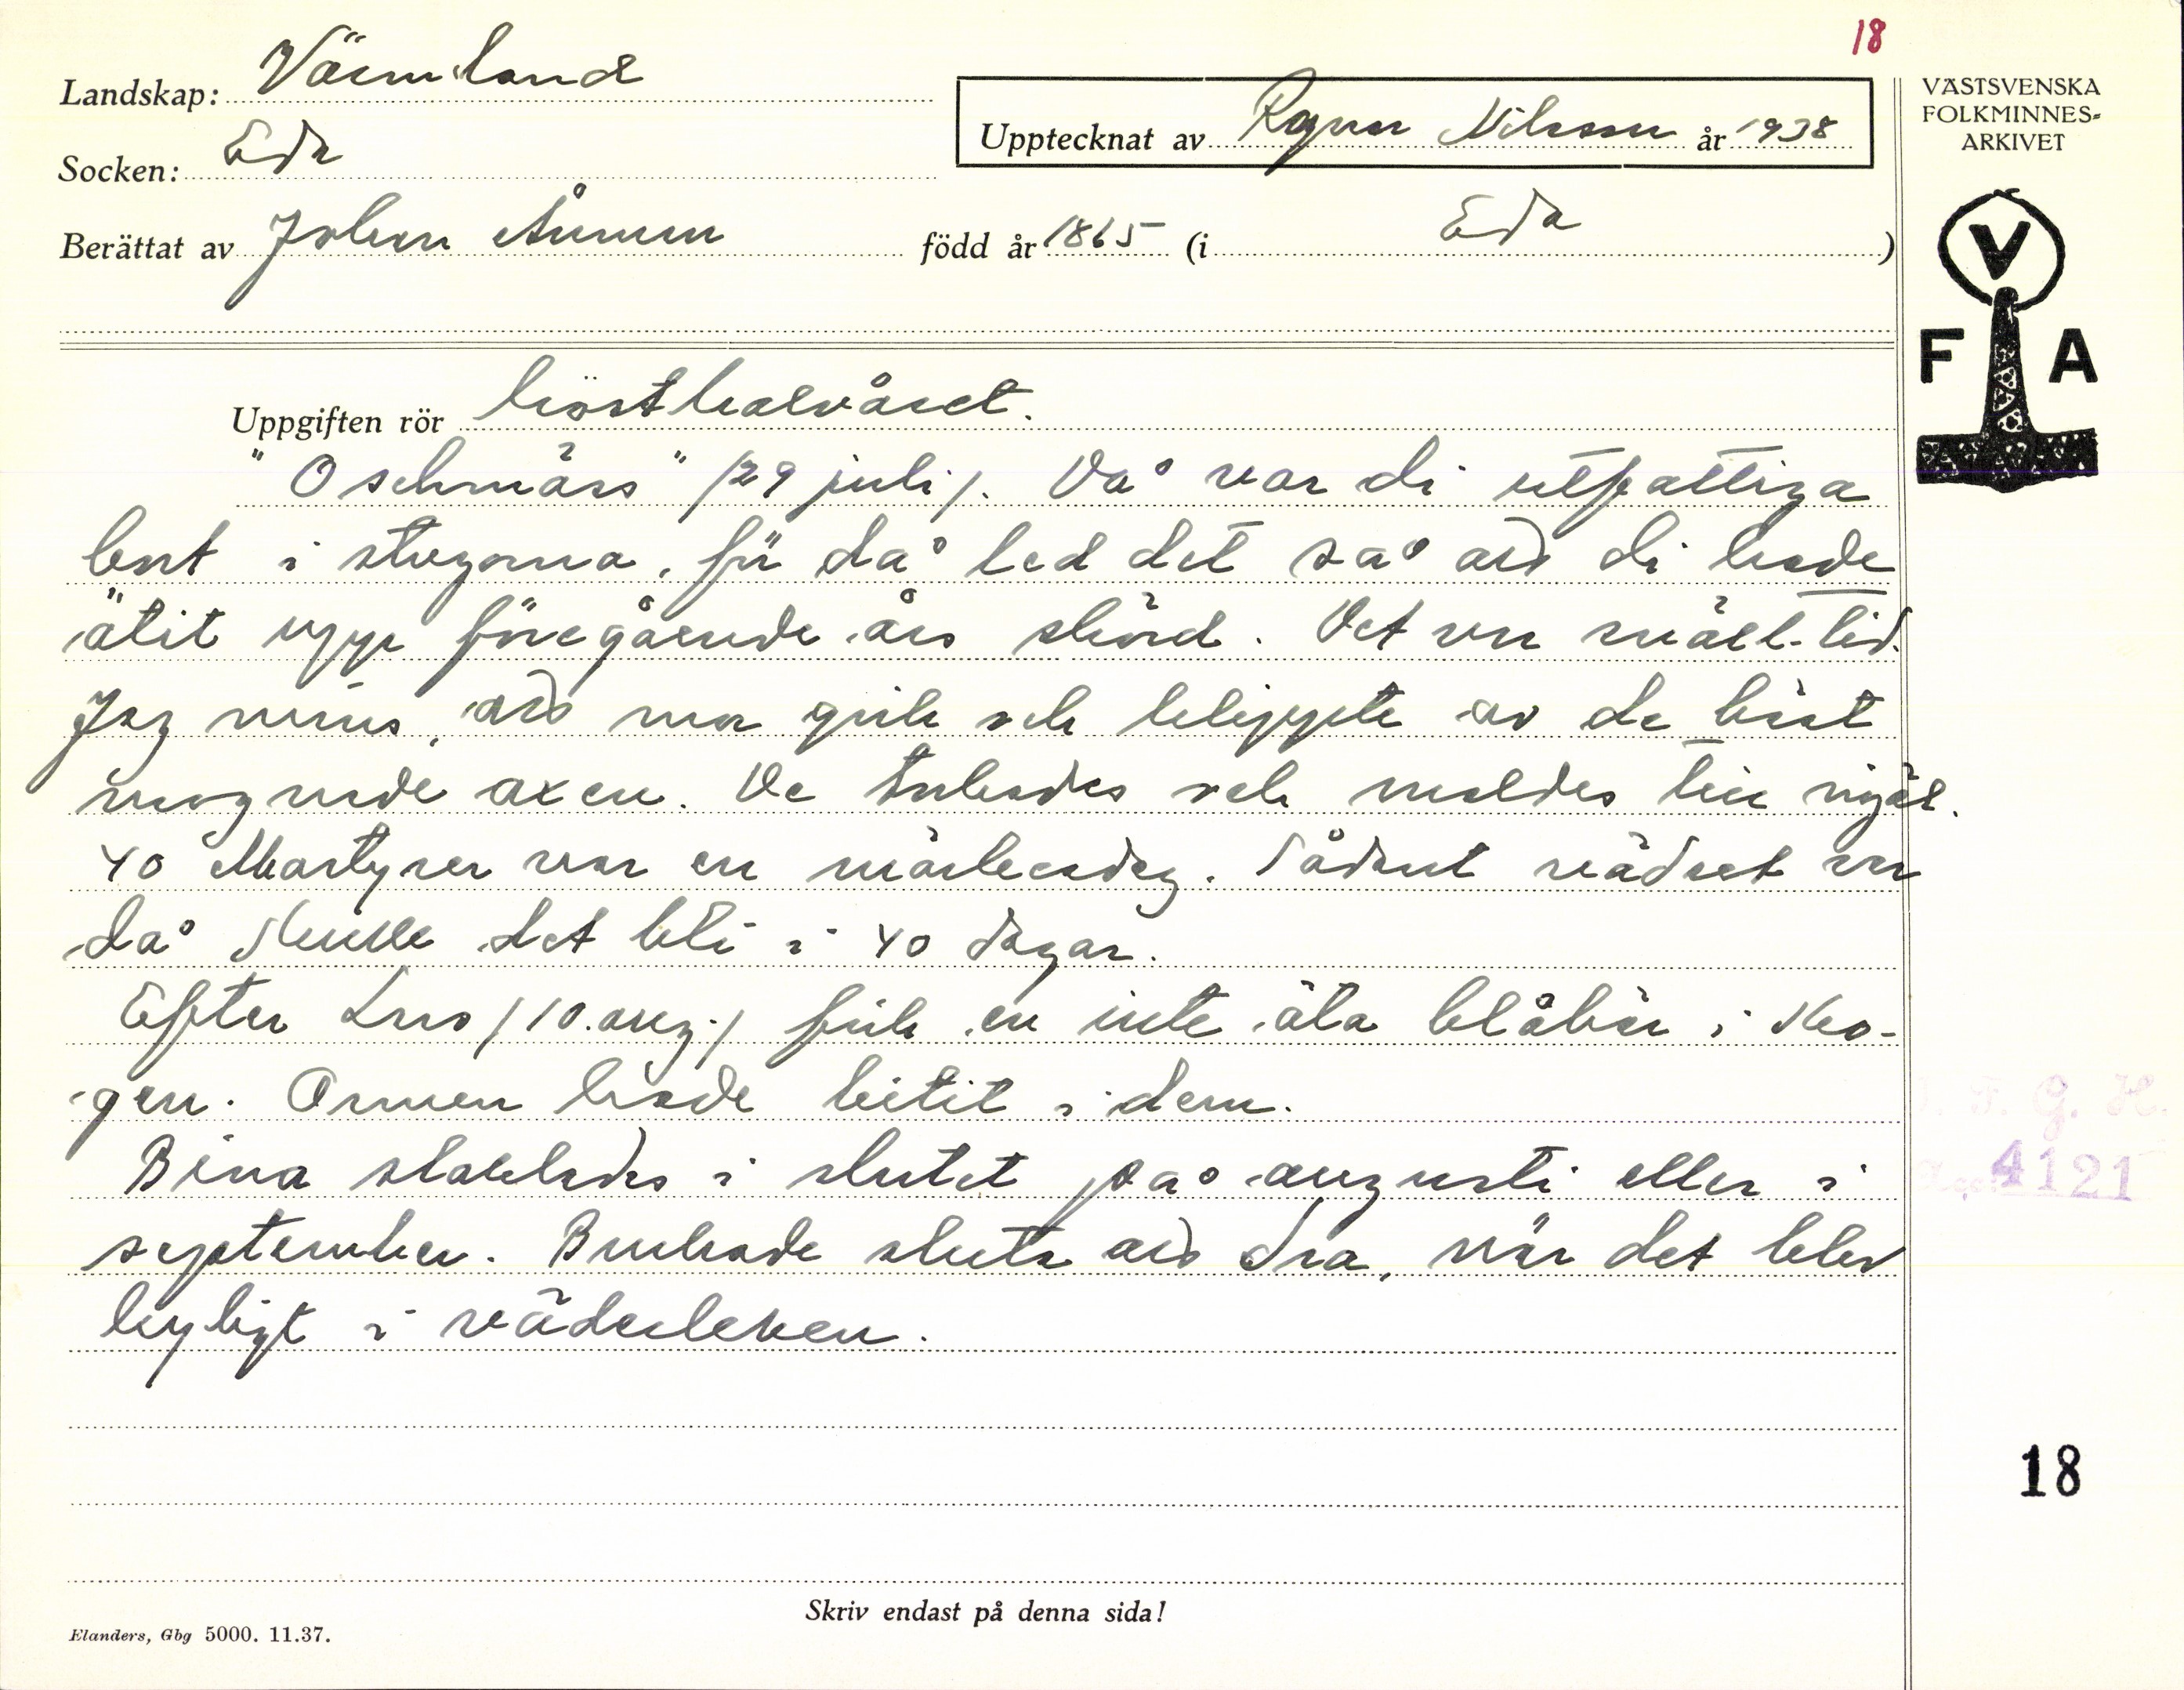 18
Landskap: Värmland
Socken: Eda
Upptecknat av Ragnar Nilsson år 1938
Berättat av Johan född år 1865 (i Eda)
VÄSTSVENSKA
FOLKMINNES-
ARKIVET
V
F A
Uppgiften rör hösthalvåret.
"Oschmäss" /29 juli/. Då var di utfattiga
bort i stugorna, för då led det så att di hade
ätit upp föregående års skörd. Det var svält-tid.
Jag minns, att man gick och klippte av de bäst
mognade axen. De torkades och maldes till mjöl.
40 Martyrer var en märkesdag. Sådant vädret var
då skulle det bli i 40 dagar.
Efter Lars /10. aug./ fick en inte äta blåbär i sko-
gen. Ormen hade bitit i dem.
Bina slaktades i slutet på augusti eller i
september. Brukade sluta att dra, när det blev
kyligt i väderleken.
I. F. G. H.
Acc. 4121
18
Skriv endast på denna sida!
Elanders, Gbg 5000. 11.37.